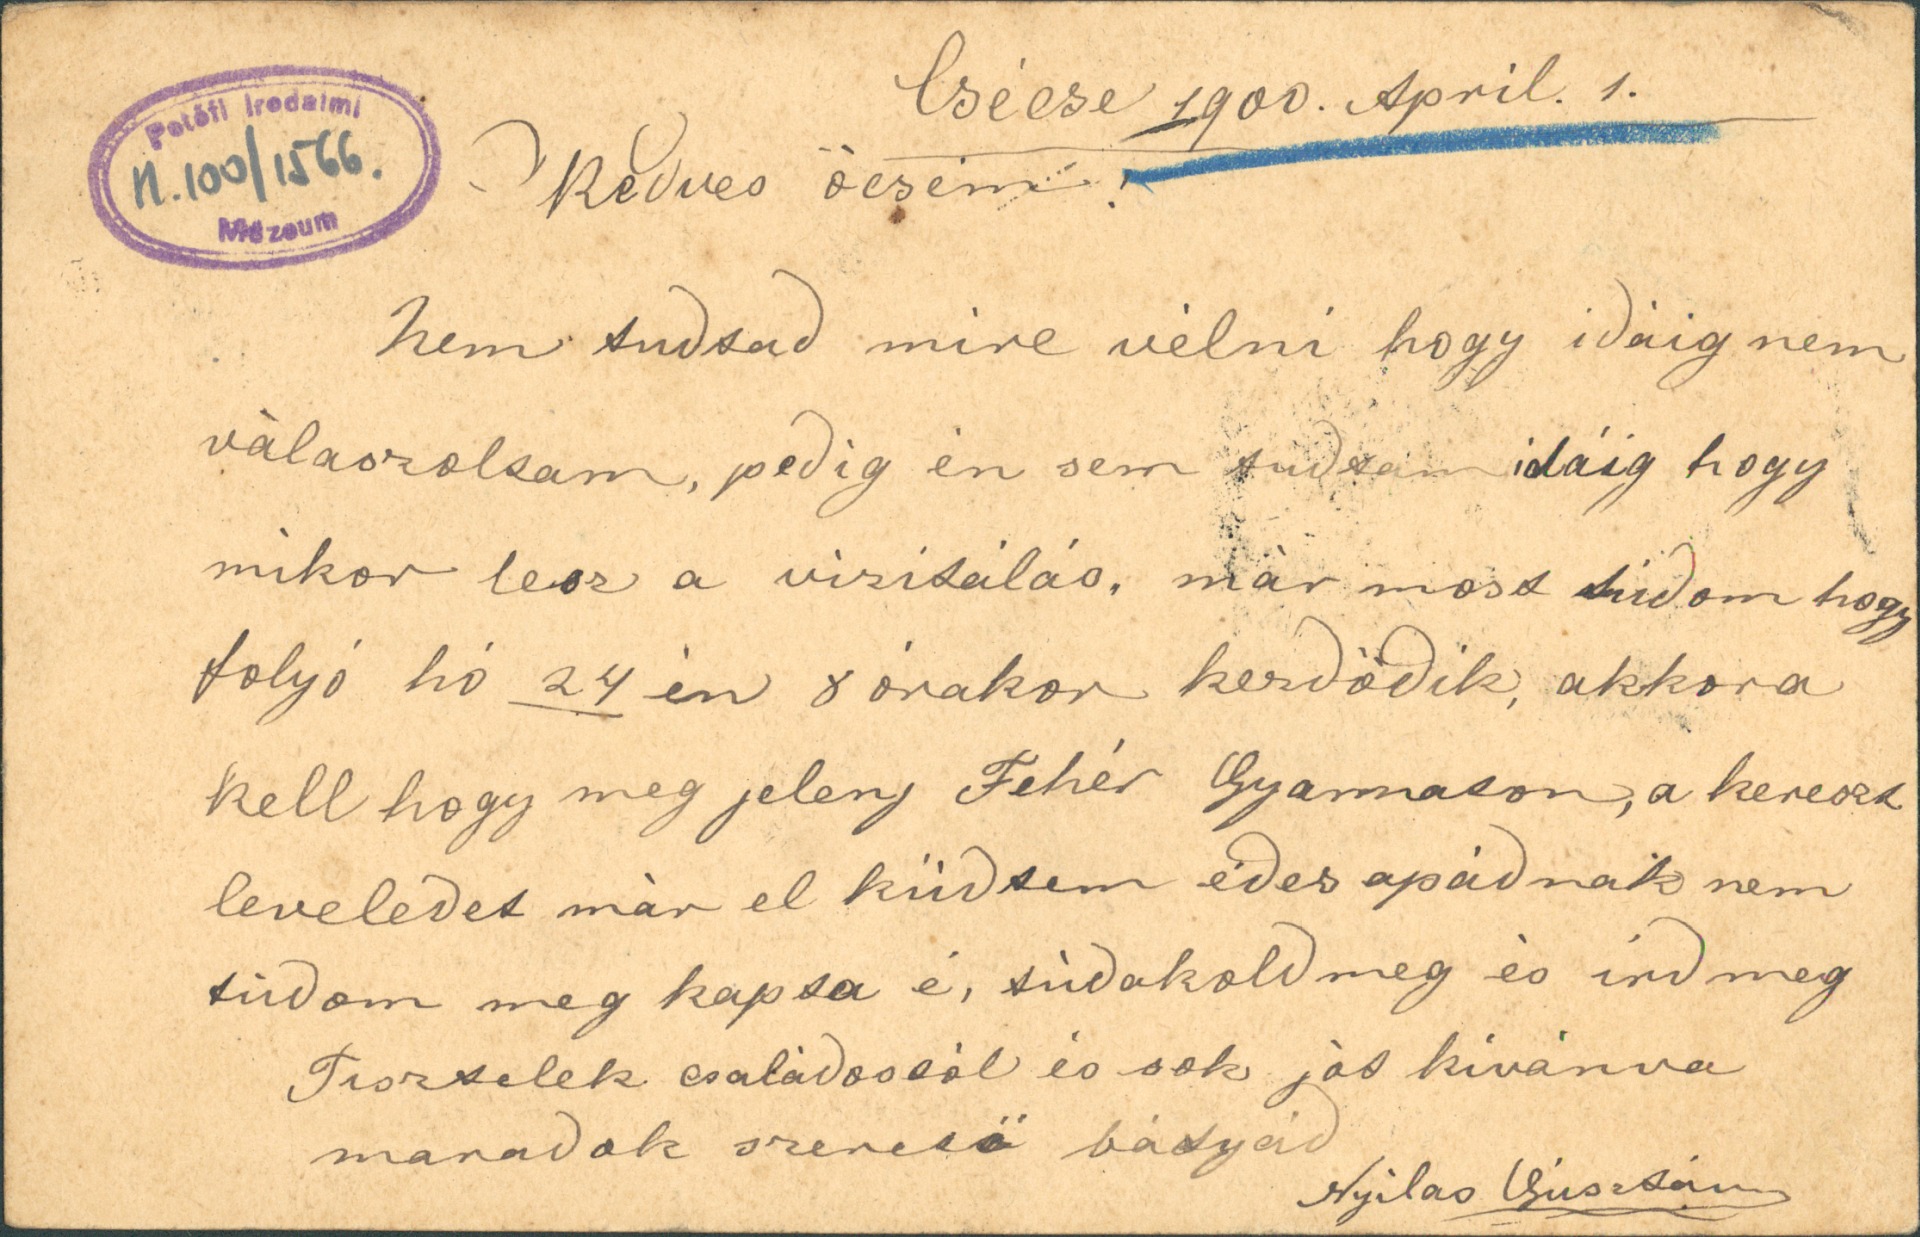 Petőfi Irodalmi
N.100/1566.
Múzeum
Csécse 1900. April. 1.
Kedves öcsém!
Nem tudtad mire vélni hogy idáig nem
válaszoltam, pedig én sem tudtam idáig hogy
mikor lesz a vizitálás, már most túdom hogy
folyó hó 24 én 8 órakor kezdödik, akkora
kell hogy meg jelenj Fehér Gyarmaton, a kereszt
leveledet már el küdtem édes apádnak nem
túdom meg kapta é, túdakold meg és ird meg
Tisztelek családostól és sok jót kívánva
maradok szerető bátyád
Nyilas Gúsztáv